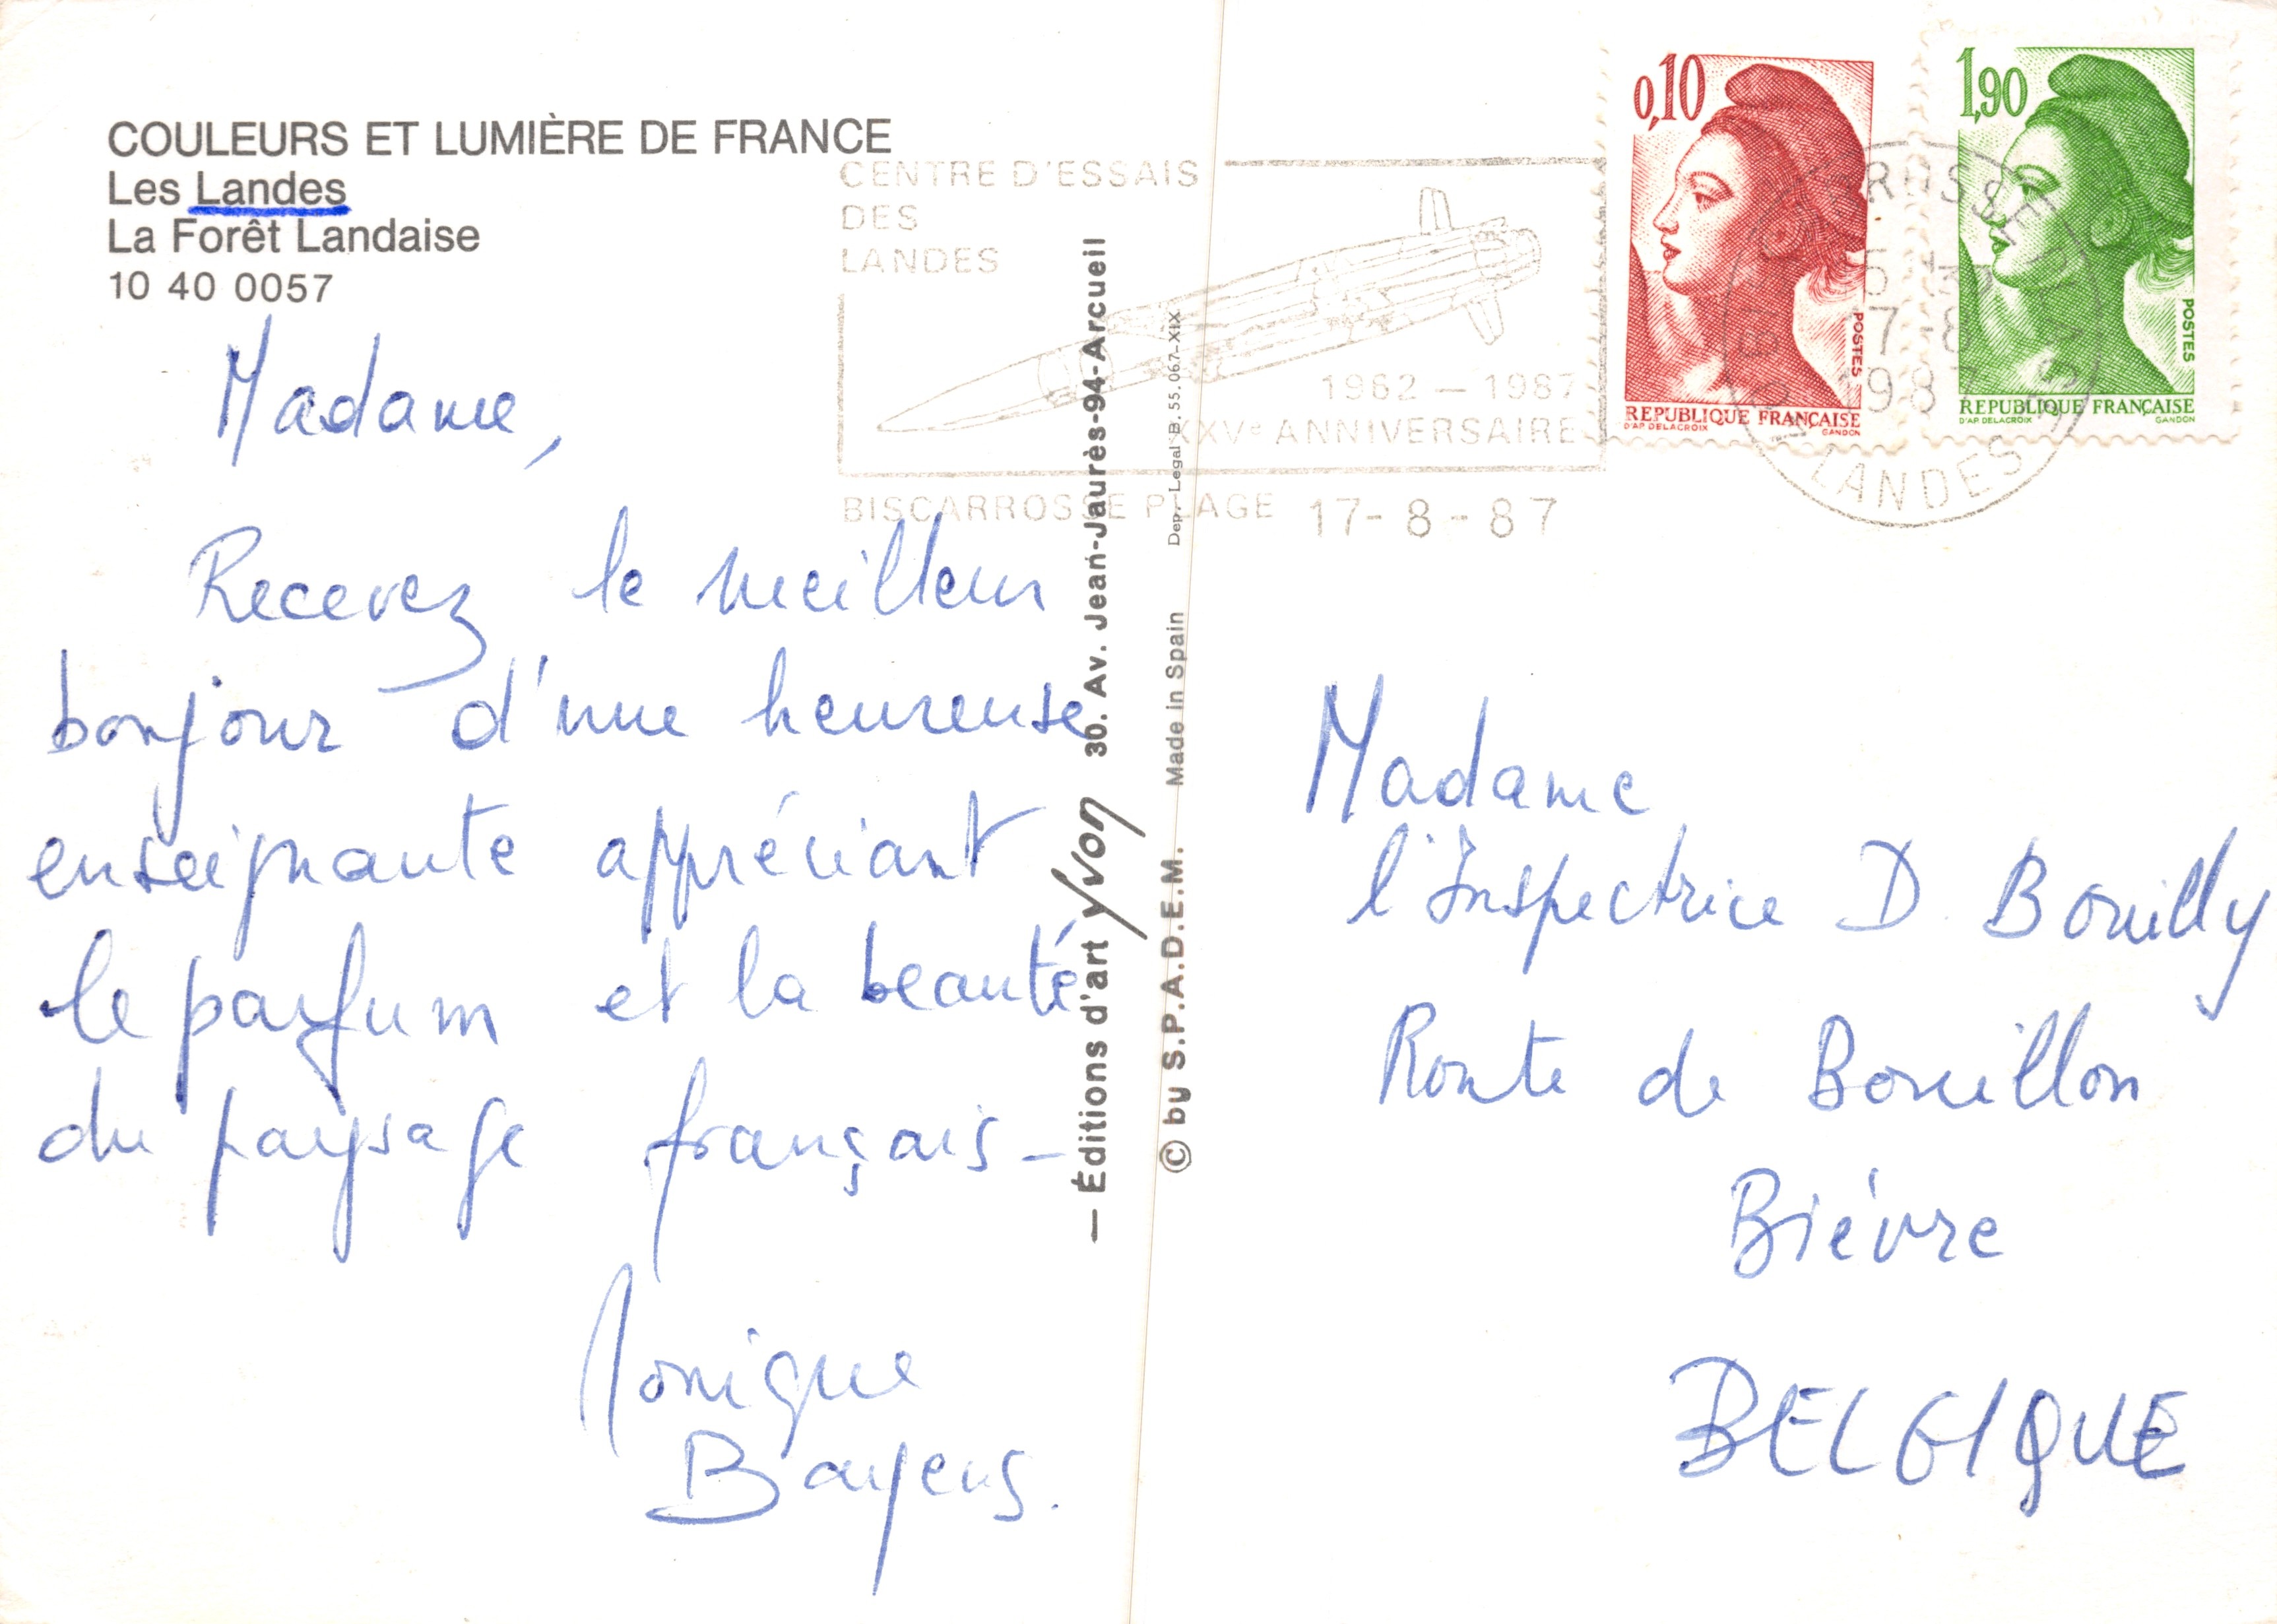 COULEURS ET LUMIÈRE DE FRANCE
Les Landes
La Forêt Landaise
10 40 0057
Madame,
Recevez le meilleur
bonjour d'une heureuse
enseignante appréciant
le parfum et la beauté
du paysage français –
Monique
Bayens.
— Éditions d'art yvon 30. Av. Jean-Jaurès-94-Arcueil
© by S.P.A.D.E.M. Made in Spain Dep. Legal B. 55.067-XIX
CENTRE D'ESSAIS
DES
LANDES
1962 – 1987
XXVe ANNIVERSAIRE
BISCARROSSE PLAGE 17-8-87
0,10
POSTES
REPUBLIQUE FRANÇAISE
D'AP. DELACROIX GANDON
1,90
POSTES
REPUBLIQUE FRANÇAISE
D'AP. DELACROIX GANDON
1987
LANDES
Madame
l'Inspectrice D. Bouilly
Route de Bouillon
Biévre
BELGIQUE